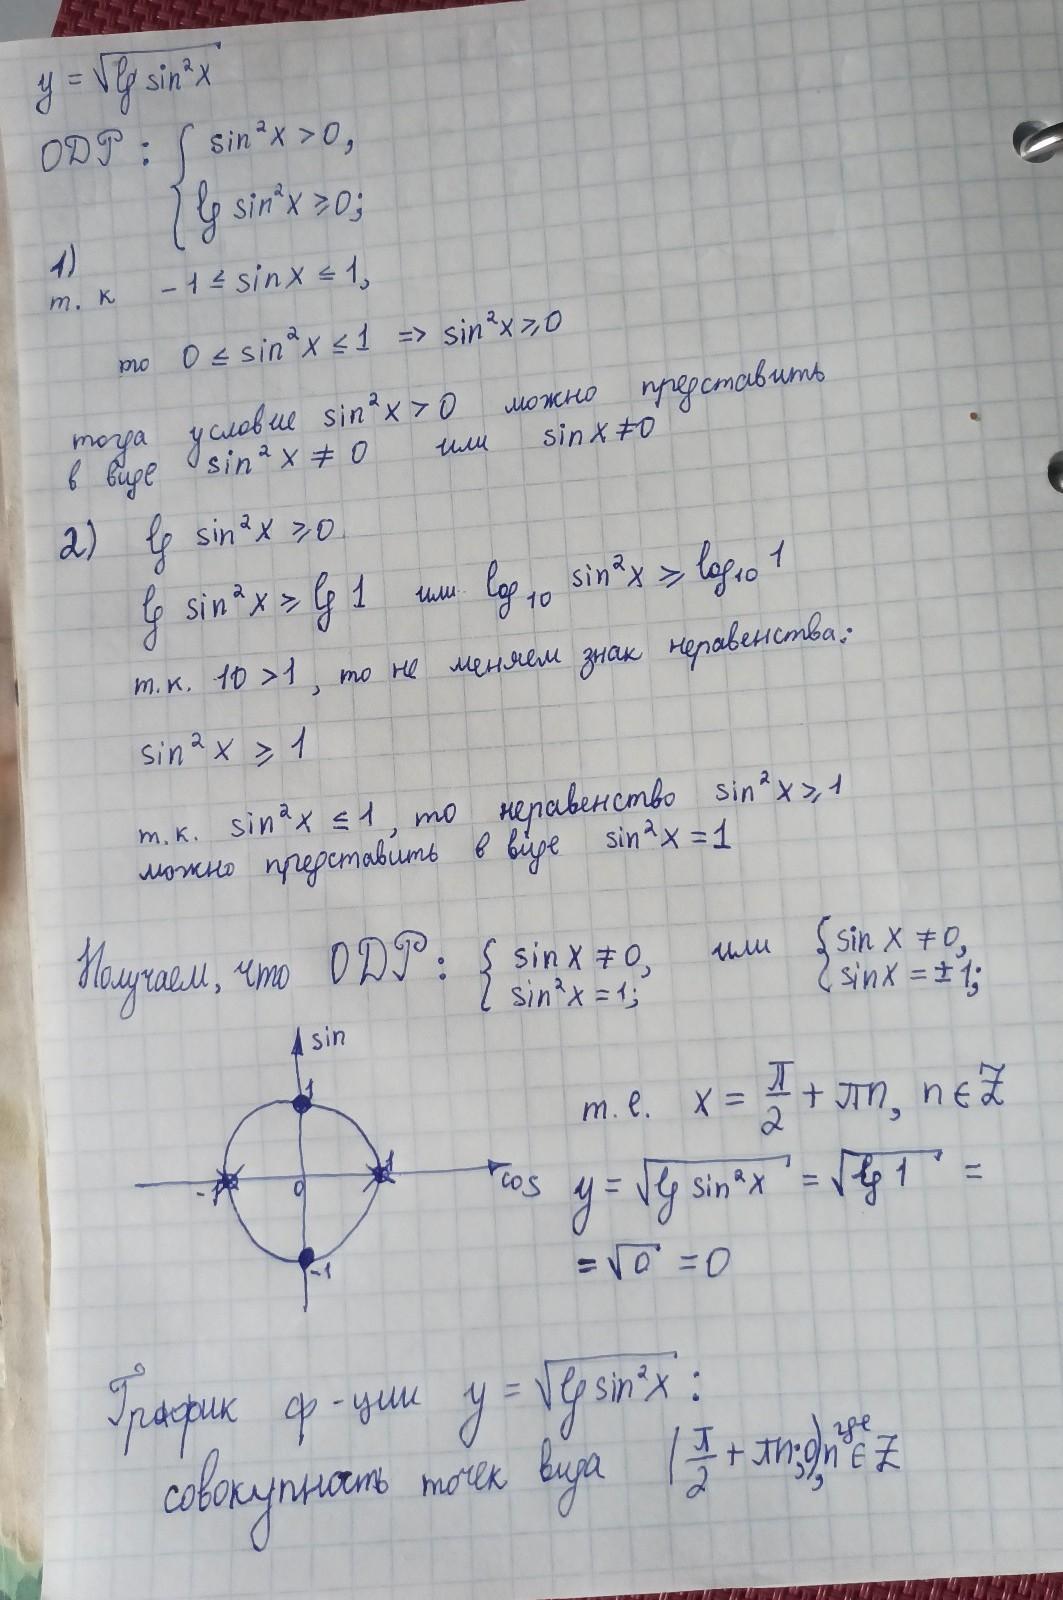 y = √(lg sin²x)
ОДР : { sin²x > 0,
lg sin²x ⩾ 0;
1)
т. к -1 ≤ sin x ≤ 1,
то 0 ≤ sin²x ≤ 1 => sin²x ⩾ 0
тогда условие sin²x > 0 можно представить
в виде sin²x ≠ 0 или sin x ≠ 0
2) lg sin²x ⩾ 0
lg sin²x ⩾ lg 1 или log₁₀ sin²x ⩾ log₁₀ 1
т.к. 10 > 1, то не меняем знак неравенства:
sin²x ⩾ 1
т.к. sin²x ≤ 1, то неравенство sin²x ⩾ 1
можно представить в виде sin²x = 1
Получаем, что ОДР : { sin x ≠ 0, sin²x = 1; или { sin x ≠ 0, sin x = ± 1;
sin
1
-1 0 1 cos
-1
т.е. x = π/2 + πn, n ∈ Z
y = √(lg sin²x) = √(lg 1) =
= √0 = 0
График ф-ции y = √(lg sin²x) :
совокупность точек вида (π/2 + πn; 0), где n ∈ Z